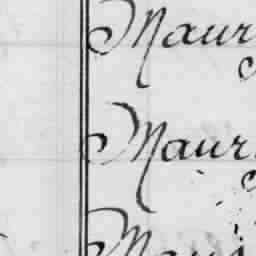 Maur
Maur
Mau